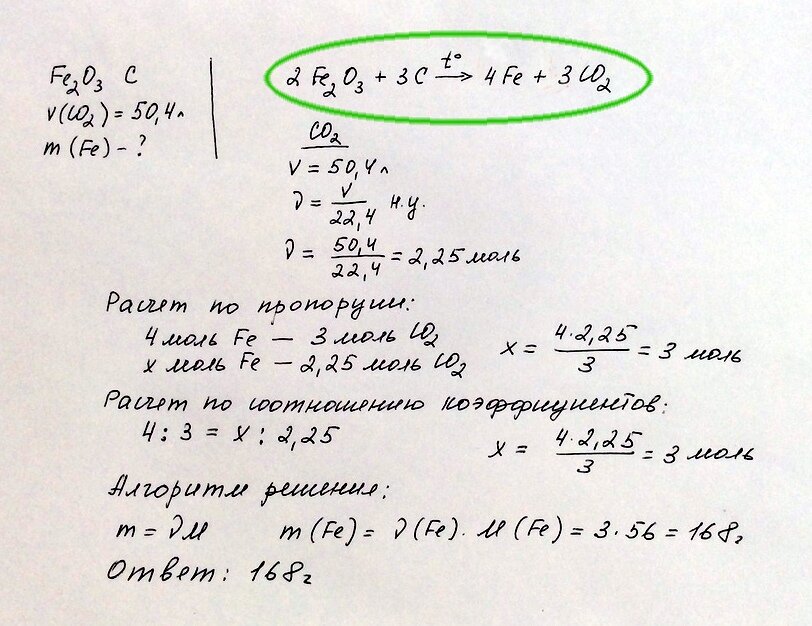 Fe₂O₃ C
V(CO₂) = 50,4 л
m (Fe) - ?
2 Fe₂O₃ + 3 C t° → 4 Fe + 3 CO₂
CO₂
V = 50,4 л
ν = V / 22,4 н.у.
ν = 50,4 / 22,4 = 2,25 моль
Расчет по пропорции:
4 моль Fe — 3 моль CO₂
x моль Fe — 2,25 моль CO₂
x = 4·2,25 / 3 = 3 моль
Расчет по соотношению коэффициентов:
4 : 3 = x : 2,25
x = 4·2,25 / 3 = 3 моль
Алгоритм решения:
m = νM m (Fe) = ν (Fe) · M (Fe) = 3·56 = 168 г
Ответ: 168 г